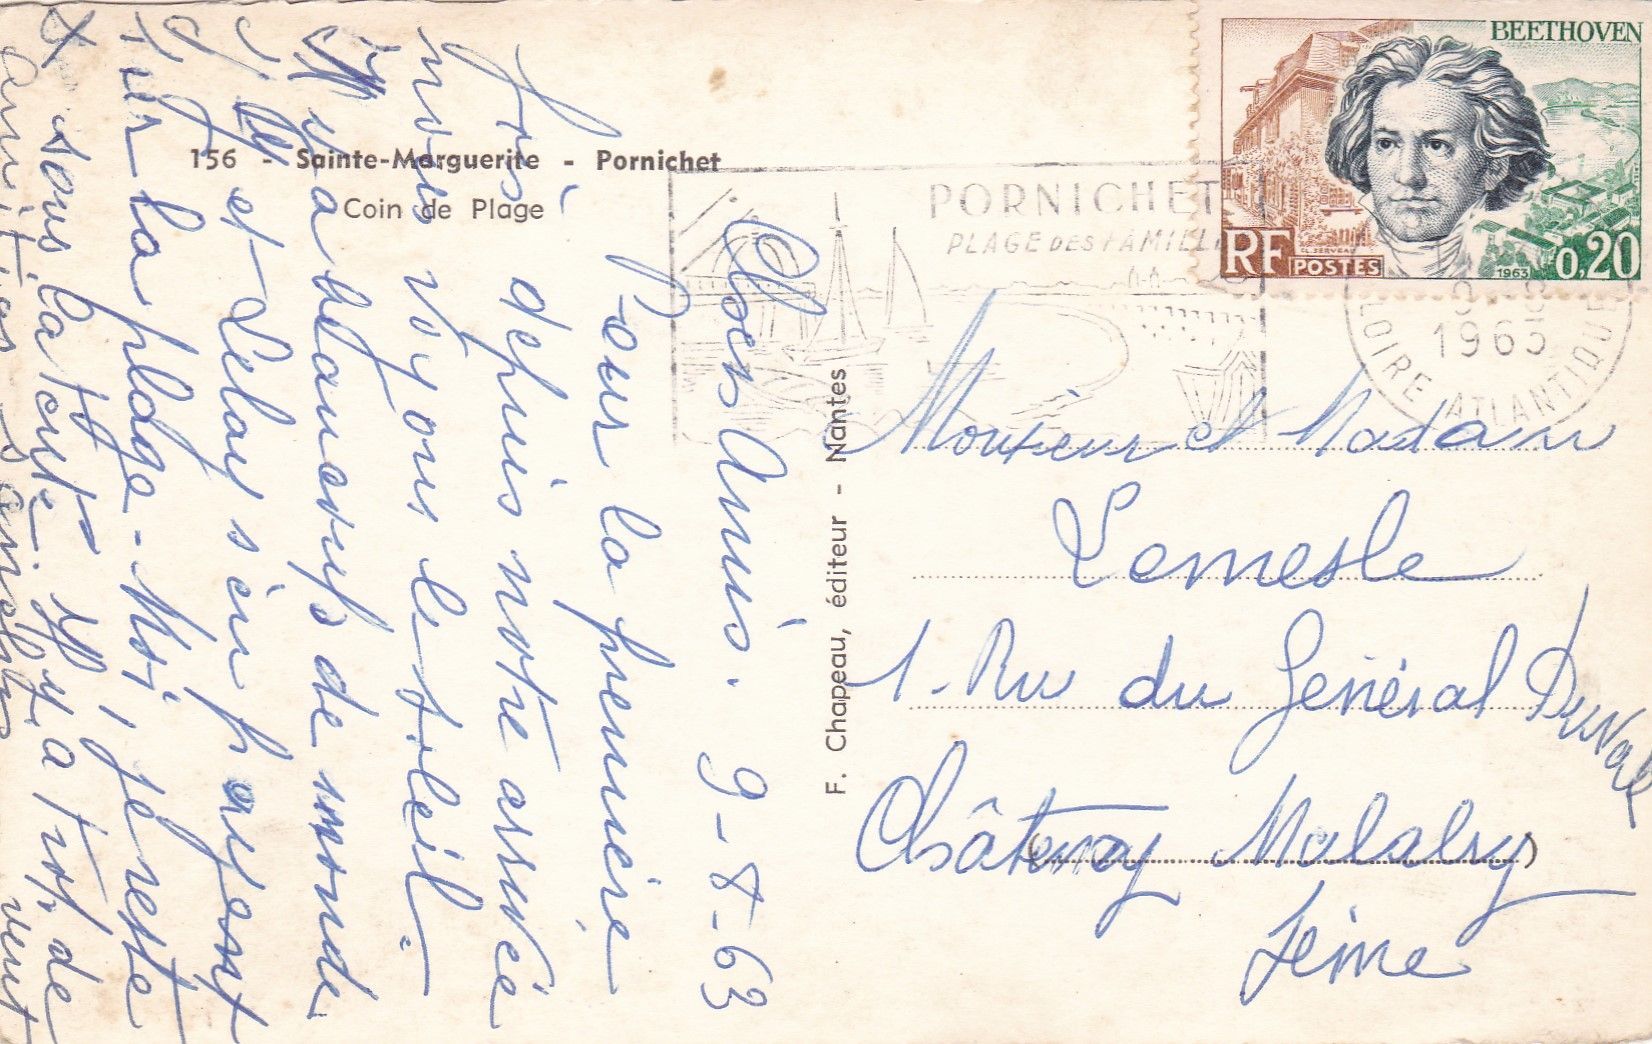 156 - Sainte-Marguerite - Pornichet
Coin de Plage
F. Chapeau, éditeur - Nantes
BEETHOVEN
RF POSTES
1963
0,20
PORNICHET
PLAGE DES FAMILL
1963
LOIRE ATLANTIQUE
Chers Amis. 9-8-63
Pour la première
fois depuis notre arrivée
nous voyons le soleil
Il y a beaucoup de monde
et Lelay s'en payent
sur la plage - Moi, je reste
sous la tente. Il y a trop de
vent
Monsieur et Madame
Lemesle
1 Rue du Général Duval
Châtenay Malabry
Seine